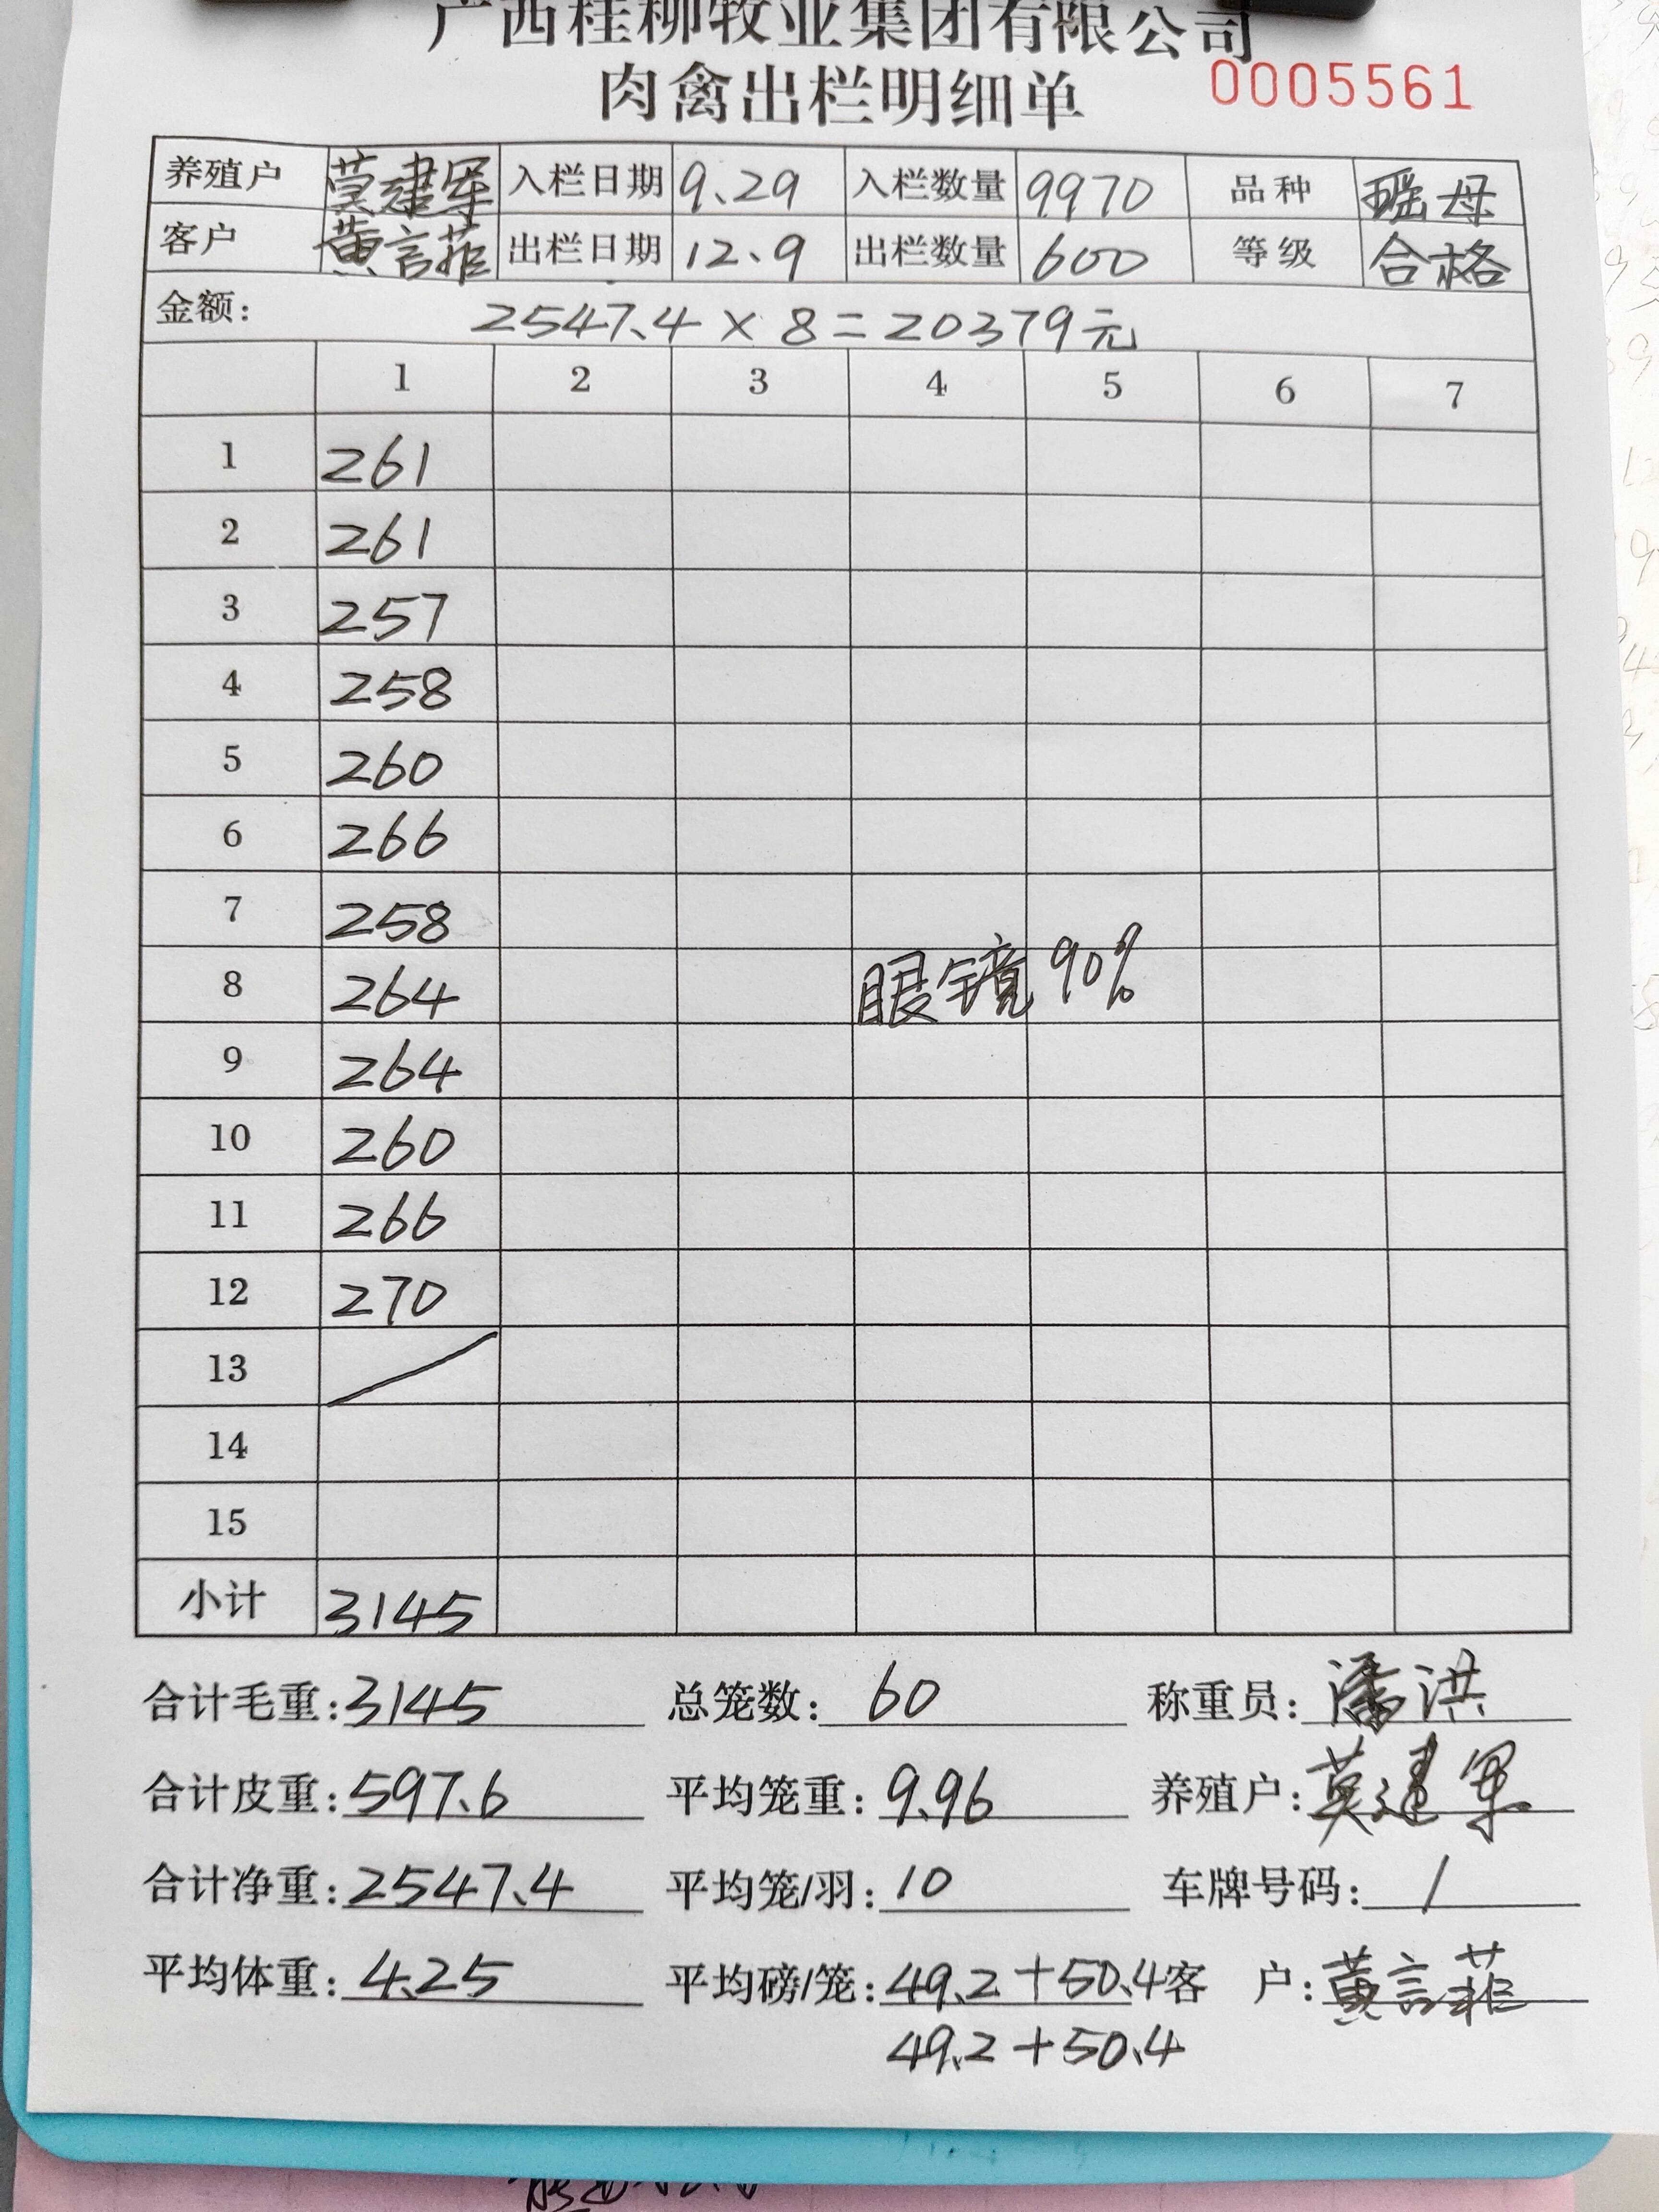 广西桂柳牧业集团有限公司
肉禽出栏明细单 0005561
养殖户 莫建军 入栏日期 9.29 入栏数量 9970 品种 瑶母
客户 黄言菲 出栏日期 12.9 出栏数量 600 等级 合格
金额: 2547.4 × 8 = 20379元
1 2 3 4 5 6 7
1 261
2 261
3 257
4 258
5 260
6 266
7 258
8 264 眼镜90%
9 264
10 260
11 266
12 270
13
14
15
小计 3145
合计毛重: 3145 总笼数: 60 称重员: 潘洪
合计皮重: 597.6 平均笼重: 9.96 养殖户: 莫建军
合计净重: 2547.4 平均笼/羽: 10 车牌号码: /
平均体重: 4.25 平均磅/笼: 49.2+50.4 客户: 黄言菲
49.2+50.4